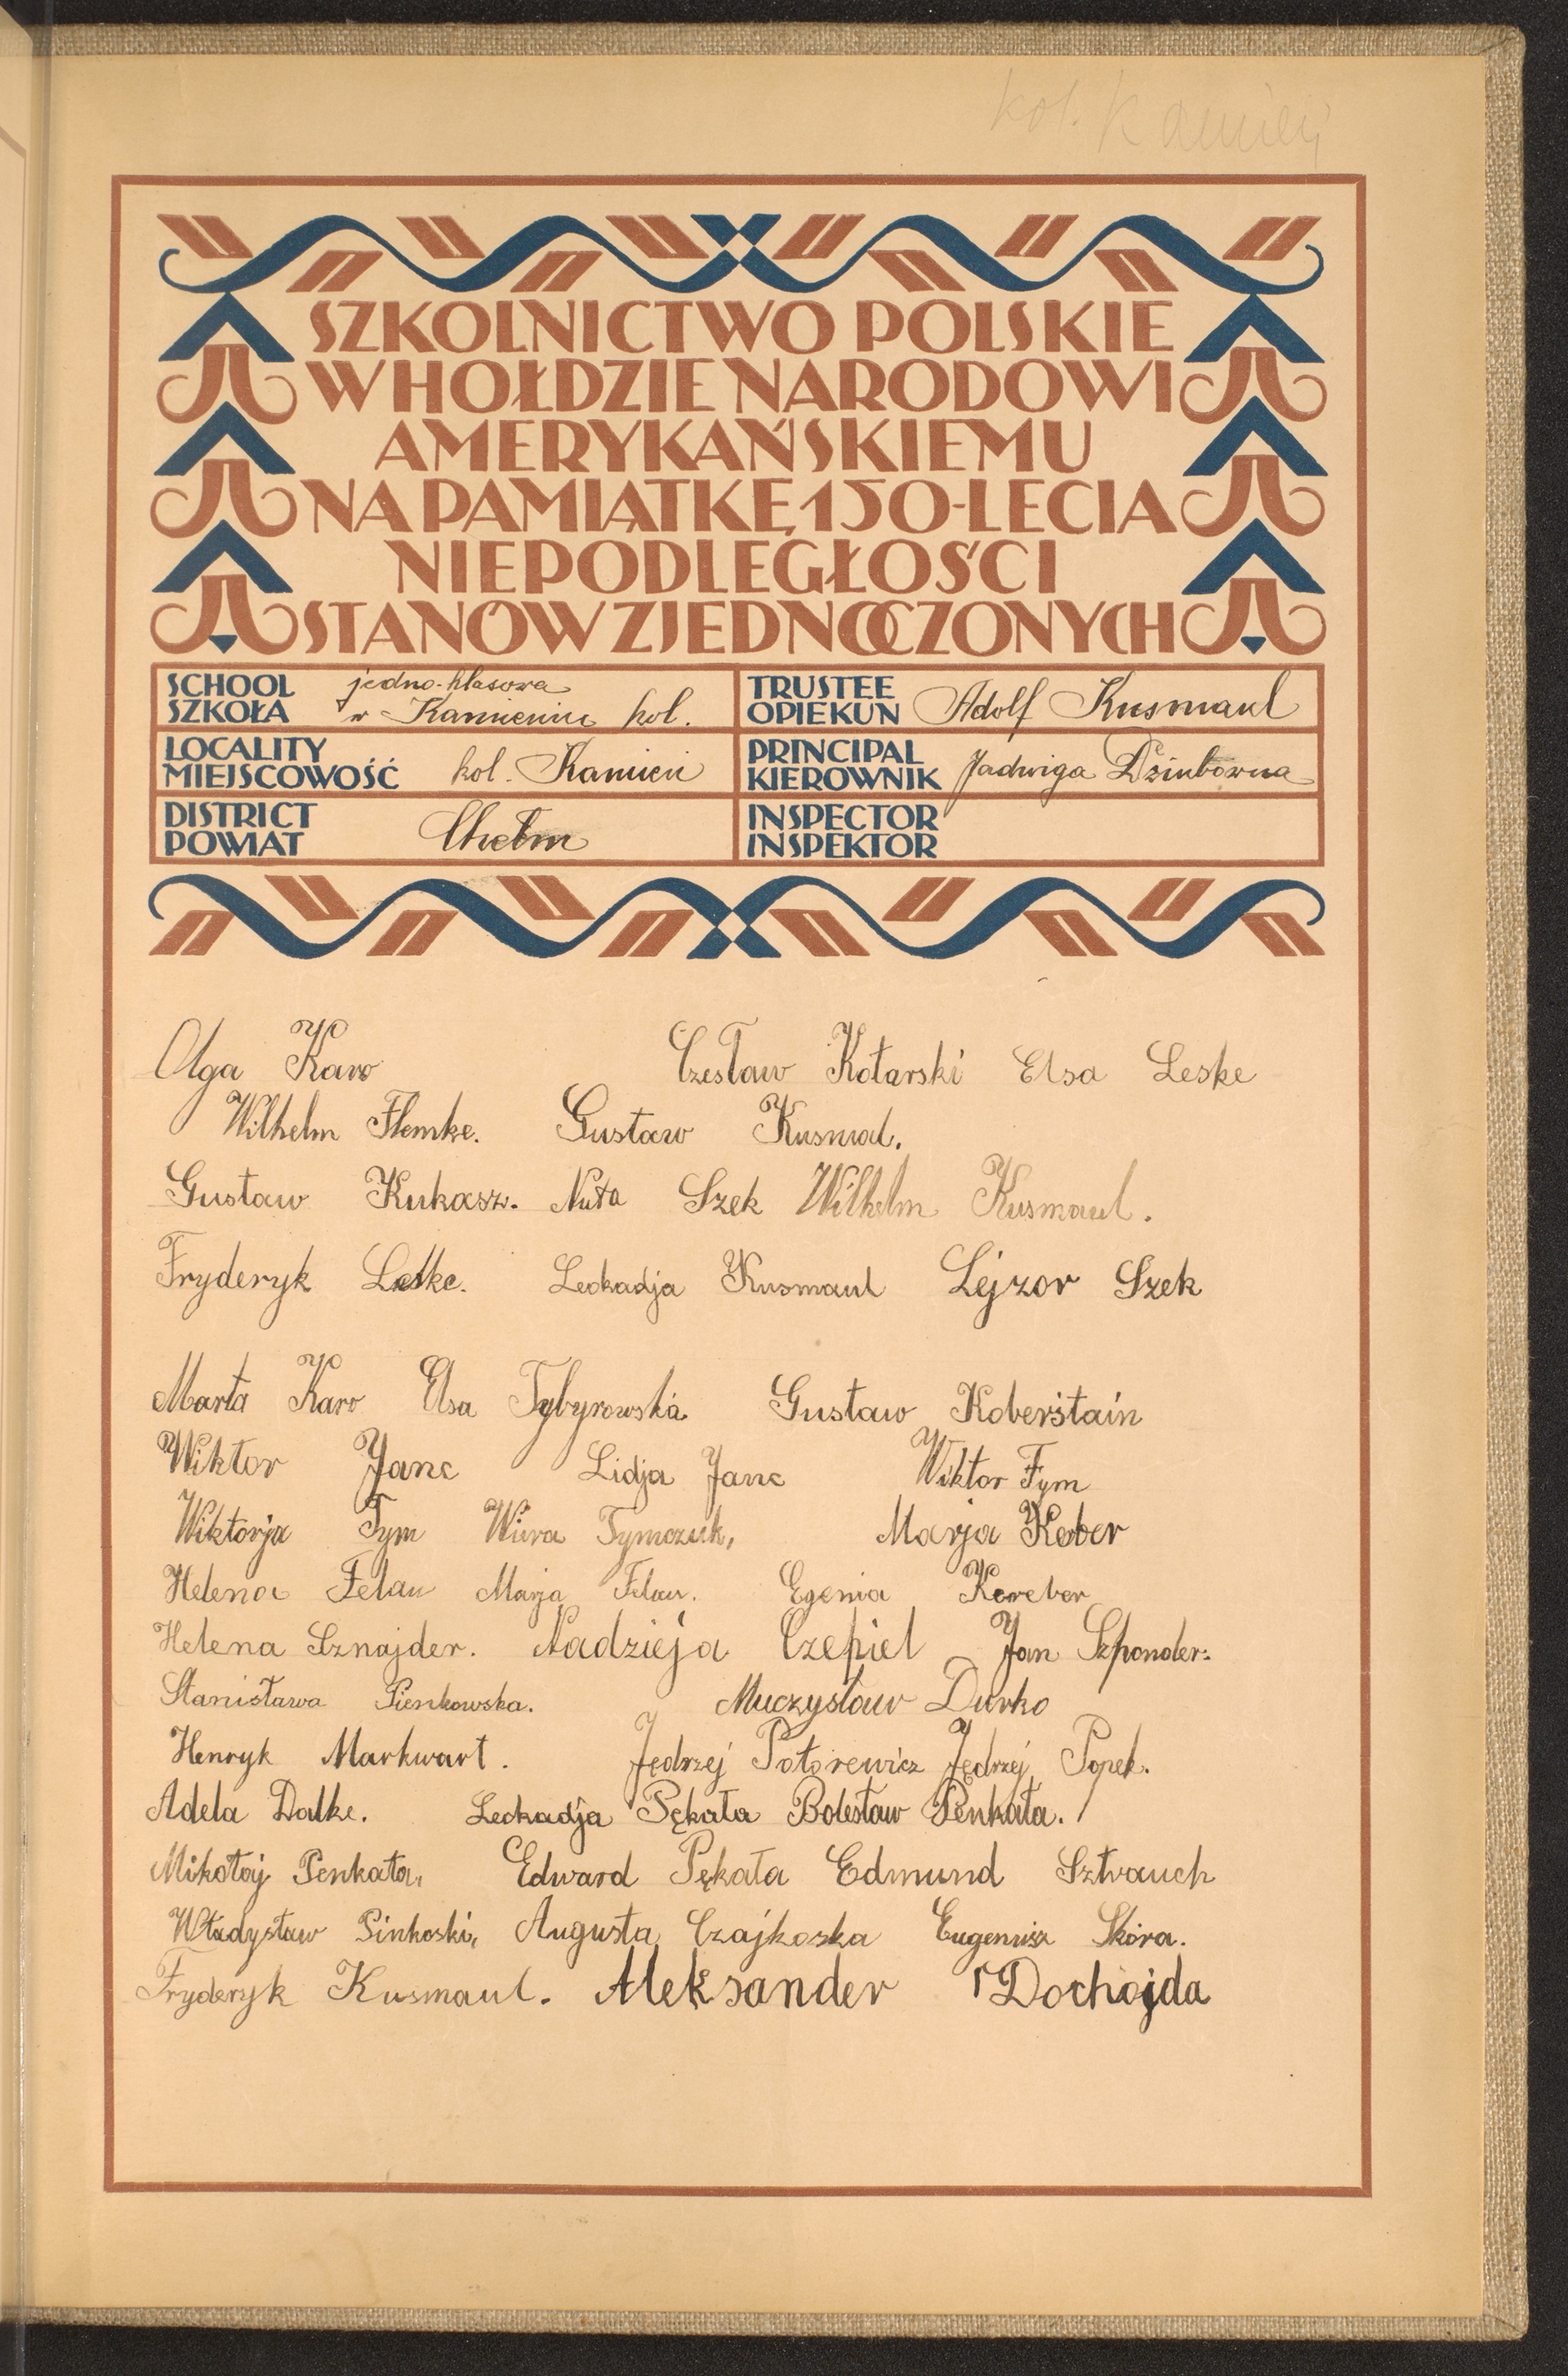 kol. Kamień
SZKOLNICTWO POLSKIE
W HOŁDZIE NARODOWI
AMERYKAŃSKIEMU
NA PAMIĄTKĘ 150-LECIA
NIEPODLEGŁOŚCI
STANÓW ZJEDNOCZONYCH
SCHOOL
SZKOŁA
jedno-klasowa
w Kamieniu kol.
TRUSTEE
OPIEKUN
Adolf Kusmaul
LOCALITY
MIEJSCOWOŚĆ
kol. Kamień
PRINCIPAL
KIEROWNIK
Jadwiga Dziubówna
DISTRICT
POWIAT
Chełm
INSPECTOR
INSPEKTOR
Olga Karo Czesław Kotarski Elsa Leske
Wilhelm Flemke. Gustaw Kusmal.
Gustaw Kukasz. Nuta Szek Wilhelm Kusmaul.
Fryderyk Leske. Leokadja Kusmaul Lejzor Szek
Marta Karo Elsa Tybyrowska Gustaw Koberstain
Wiktor Janc Lidja Janc Wiktor Tym
Wiktorja Tym Wiera Tymozuk, Marja Kerber
Helena Felau Marja Felau. Egenia Kereber
Helena Sznajder. Nadzieja Czepiel Jan Szponder.
Stanisława Pienkowska. Muczysław Durko
Henryk Markwart. Jędrzej Potorewicz Jędrzej Popek.
Adela Dalke. Leokadja Pękała Bolesław Penkała.
Mikołaj Penkała, Edward Pękała Edmund Sztrauch
Władysław Pinkoski, Augusta Czajkoska Eugeniusz Skóra.
Fryderyk Kusmaul. Aleksander Dochojda